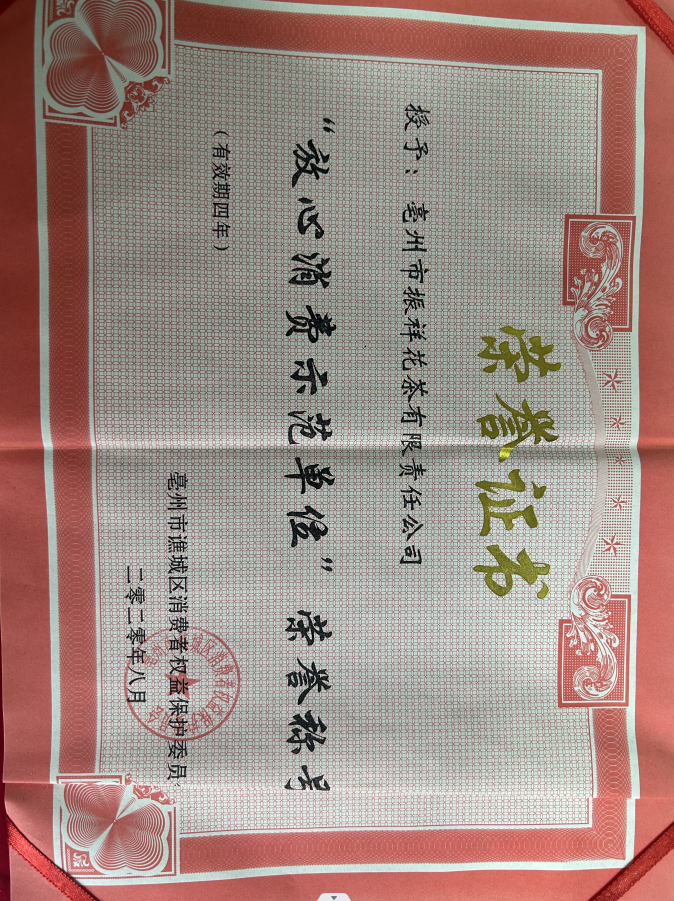 荣誉证书
授予：亳州市振祥花茶有限责任公司
“放心消费示范单位”荣誉称号
（有效期四年）
亳州市谯城区消费者权益保护委员
二零二零年八月